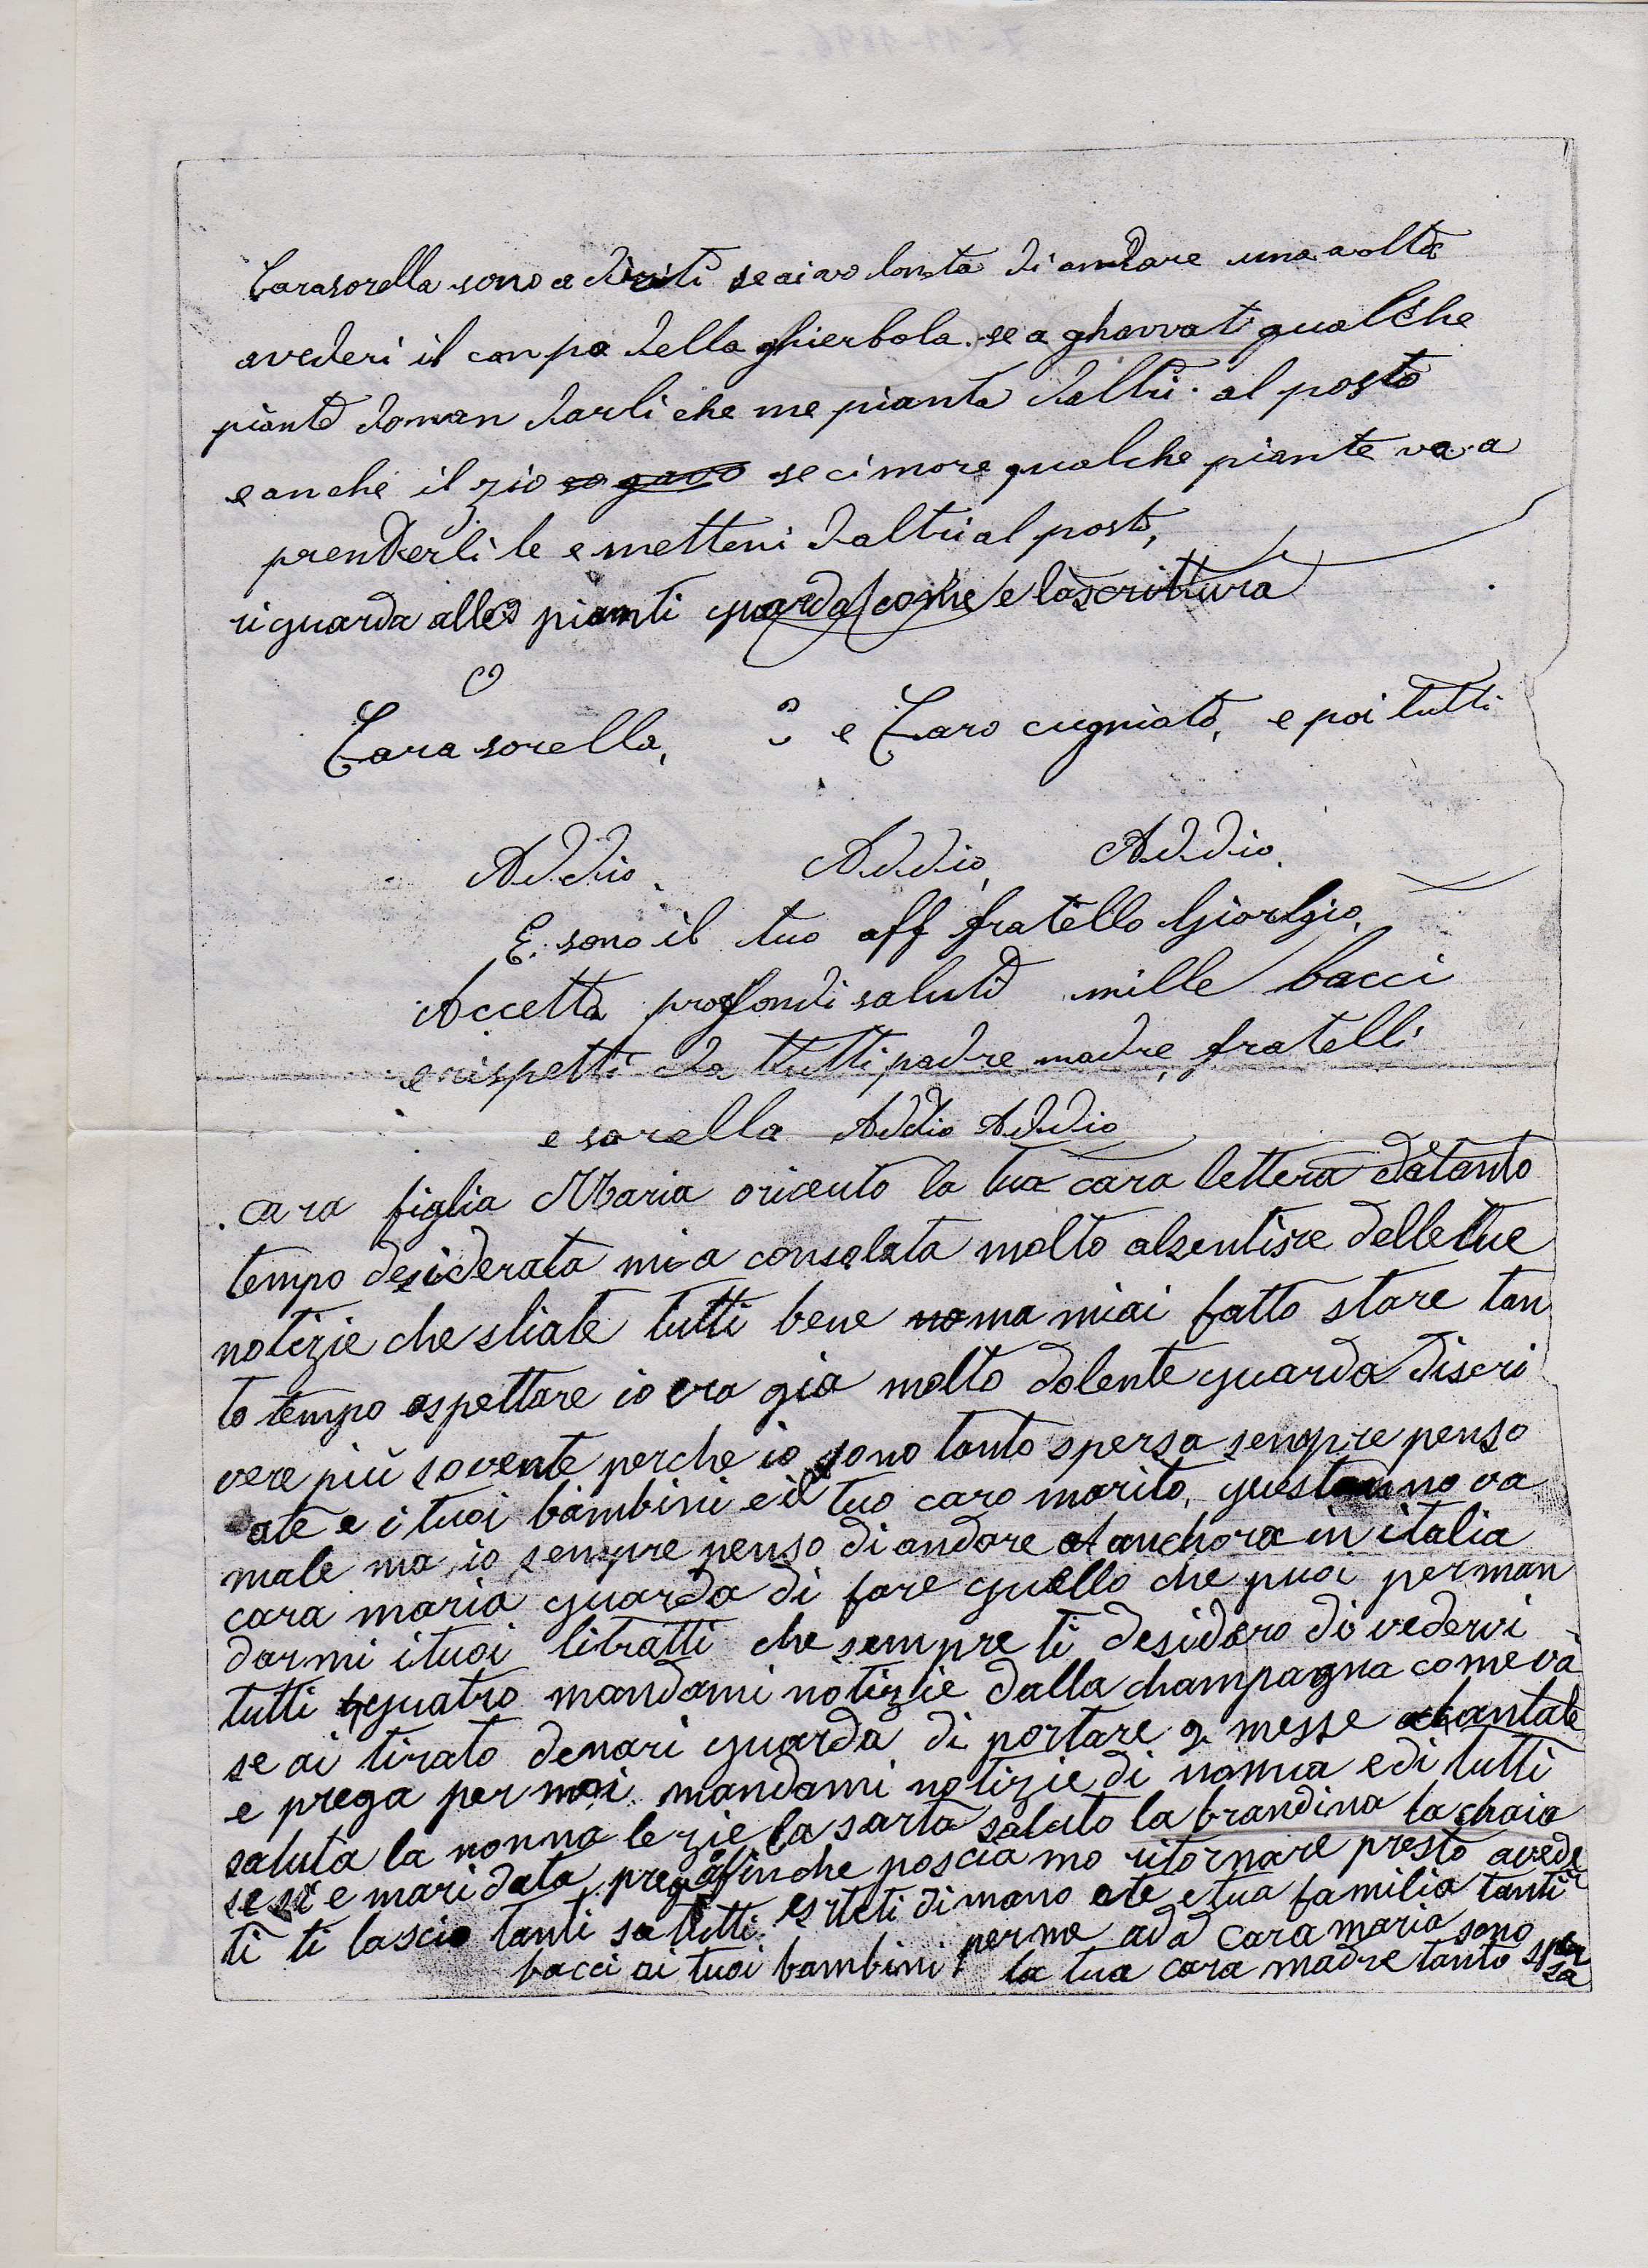 Cara sorella sono a dirti se ai vo lonta di andare una volta
avederi il canpo della ghierbola. se a ghavvati qualche
piante doman darli che me pianta daltri al posto
e anche il zio so gavo se ci more qualche piante va a
prenderli le e metteni daltri al posto,
riguarda alle pianti guarda come e la scrittura
Cara sorella, e Caro cugniato, e poi tutti
Addio Addio, Addio,
E. sono il tuo aff fratello Giorgio,
Accetta profondi saluti mille bacci
e rispetti da tutti padre madre, fratelli
e sorella Addio Addio
cara figlia Maria o riceuto la tua cara lettera da tanto
tempo desiderata mi a consolata molto al sentire delle tue
notizie che stiate tutti bene no ma miai fatto stare tan
to tempo aspettare io era gia molto dolente guarda discri
vere più sovente perche io sono tanto spersa sempre penso
ate e i tuoi bambini e il tuo caro marito, questanno va
male ma io sempre penso di andare anchora in italia
cara maria guarda di fare quello che puoi per man
darmi i tuoi litratti che sempre ti desidero di vedervi
tutti quatro mandami notizie dalla champagna come va
se ai tirato denari guarda di portare 2 messe
e prega per noi mandami notizie di nonna e di tutti
saluta la nonna le zie la sarta saluto la brandina la
se si e maridata prega finche posciamo ritornare presto avede
ti ti lascio tanti saluti di mano ate e tua familia tanti
bacci ai tuoi bambini per me cara maria sono
la tua cara madre tanto sper
sa
7-11-1896.-